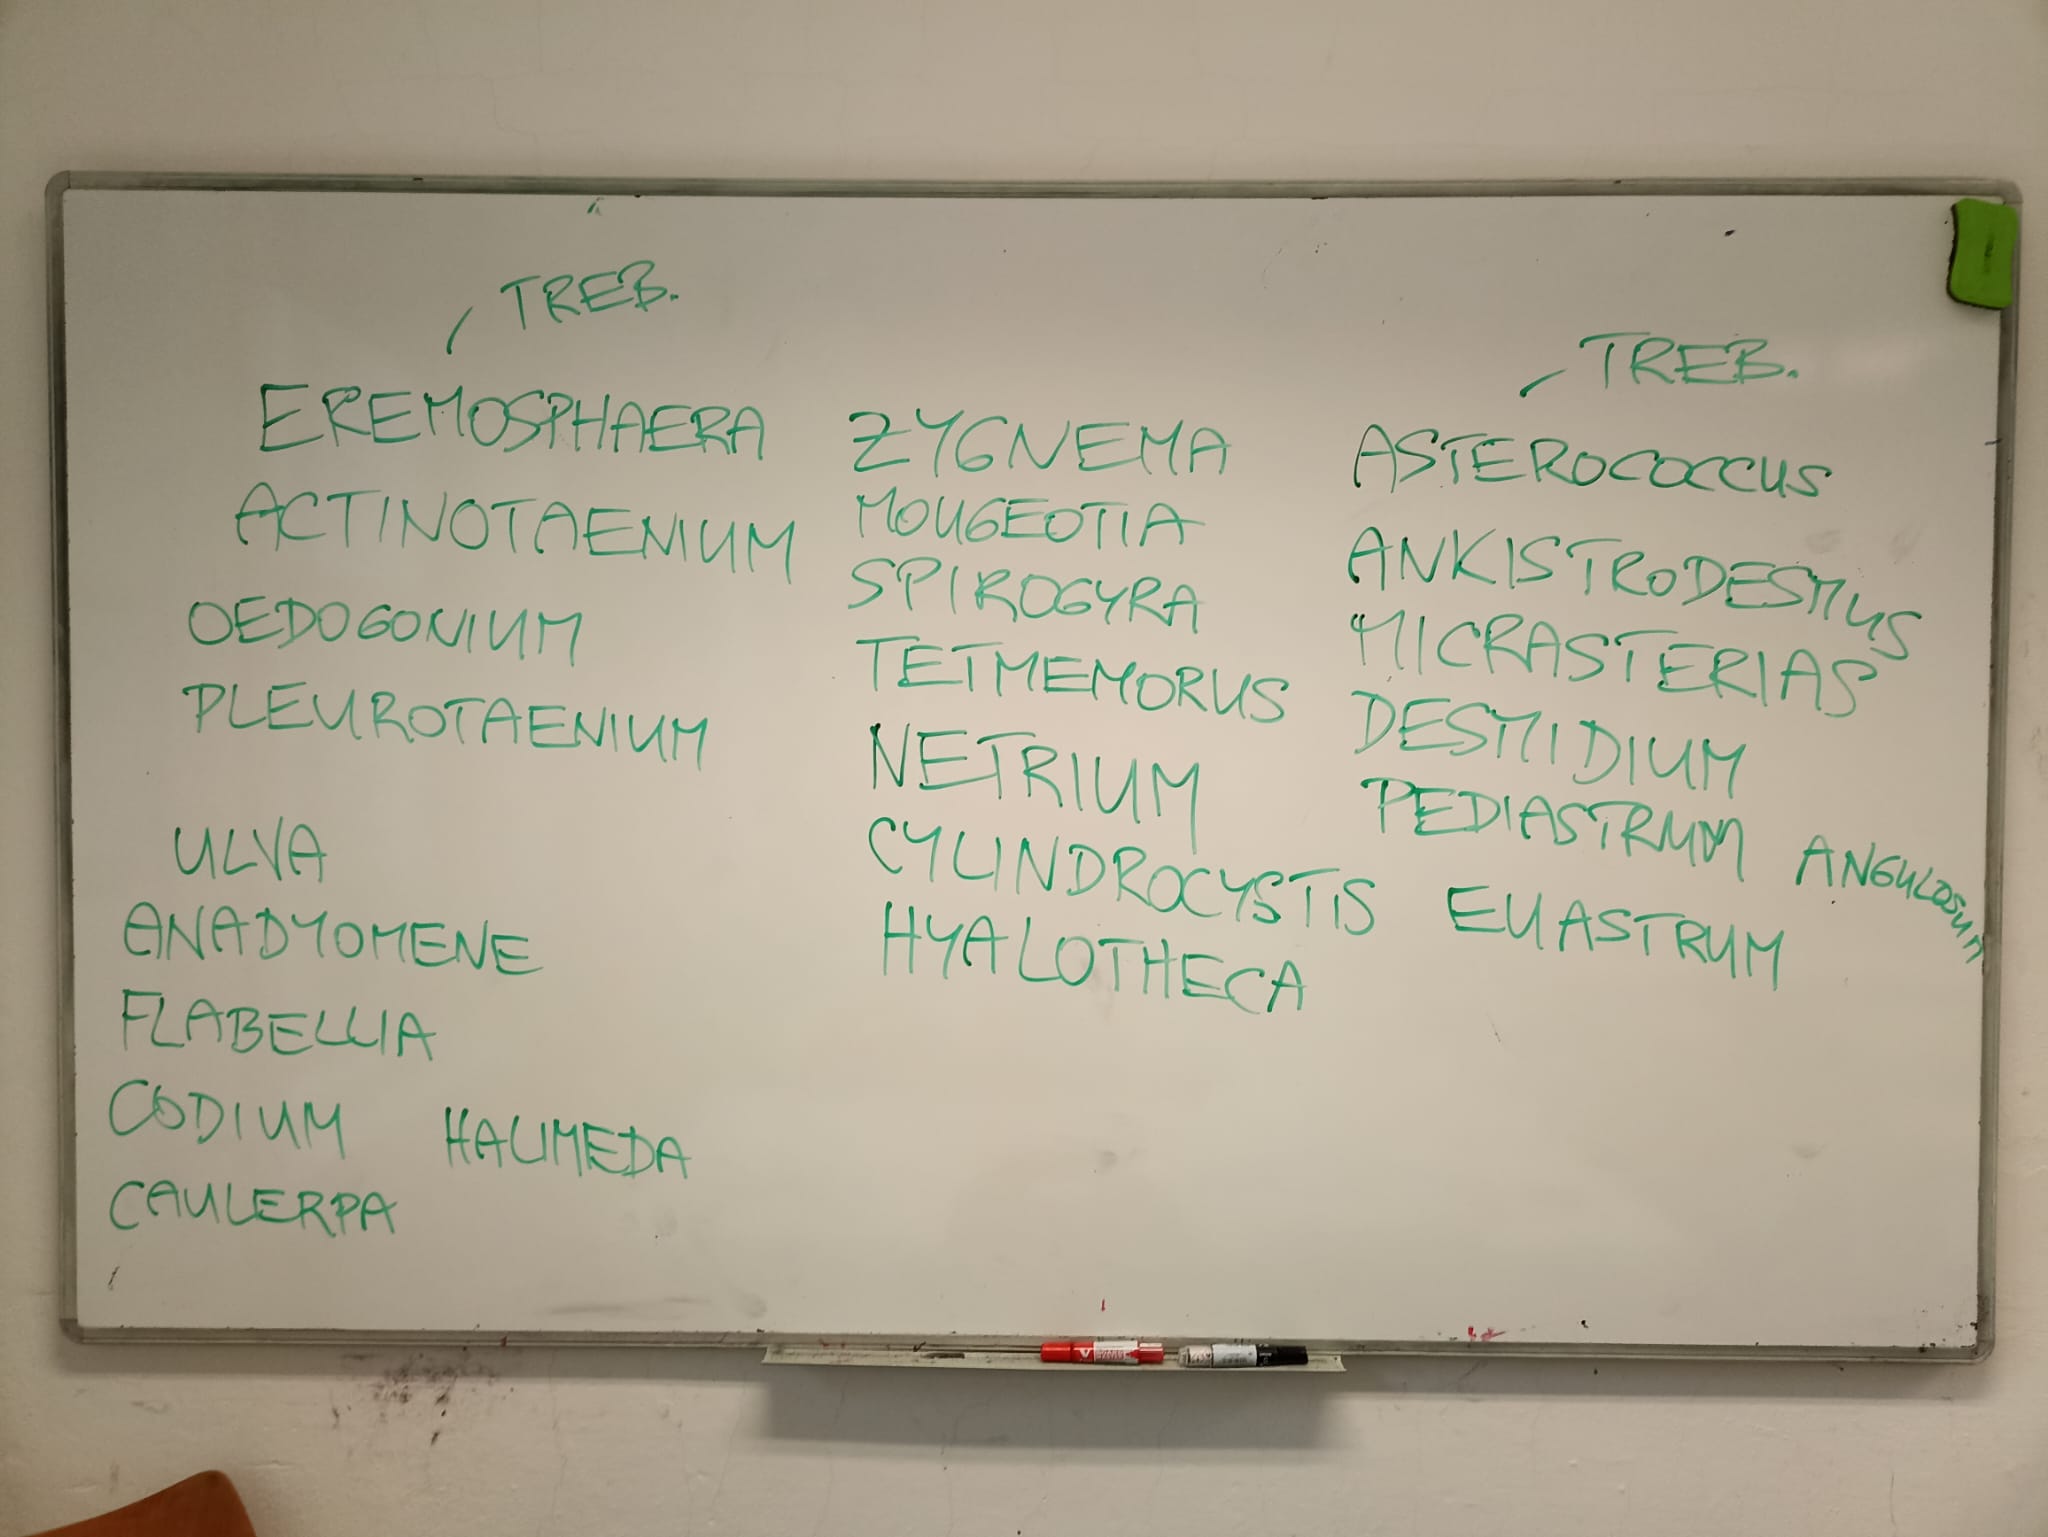 TREB.
EREMOSPHAERA
ACTINOTAENIUM
OEDOGONIUM
PLEUROTAENIUM
ULVA
ANADYOMENE
FLABELLIA
CODIUM HALIMEDA
CAULERPA
ZYGNEMA
MOUGEOTIA
SPIROGYRA
TETMEMORUS
NETRIUM
CYLINDROCYSTIS
HYALOTHECA
TREB.
ASTEROCOCCUS
ANKISTRODESMUS
MICRASTERIAS
DESMIDIUM
PEDIASTRUM ANGULOSUM
EUASTRUM